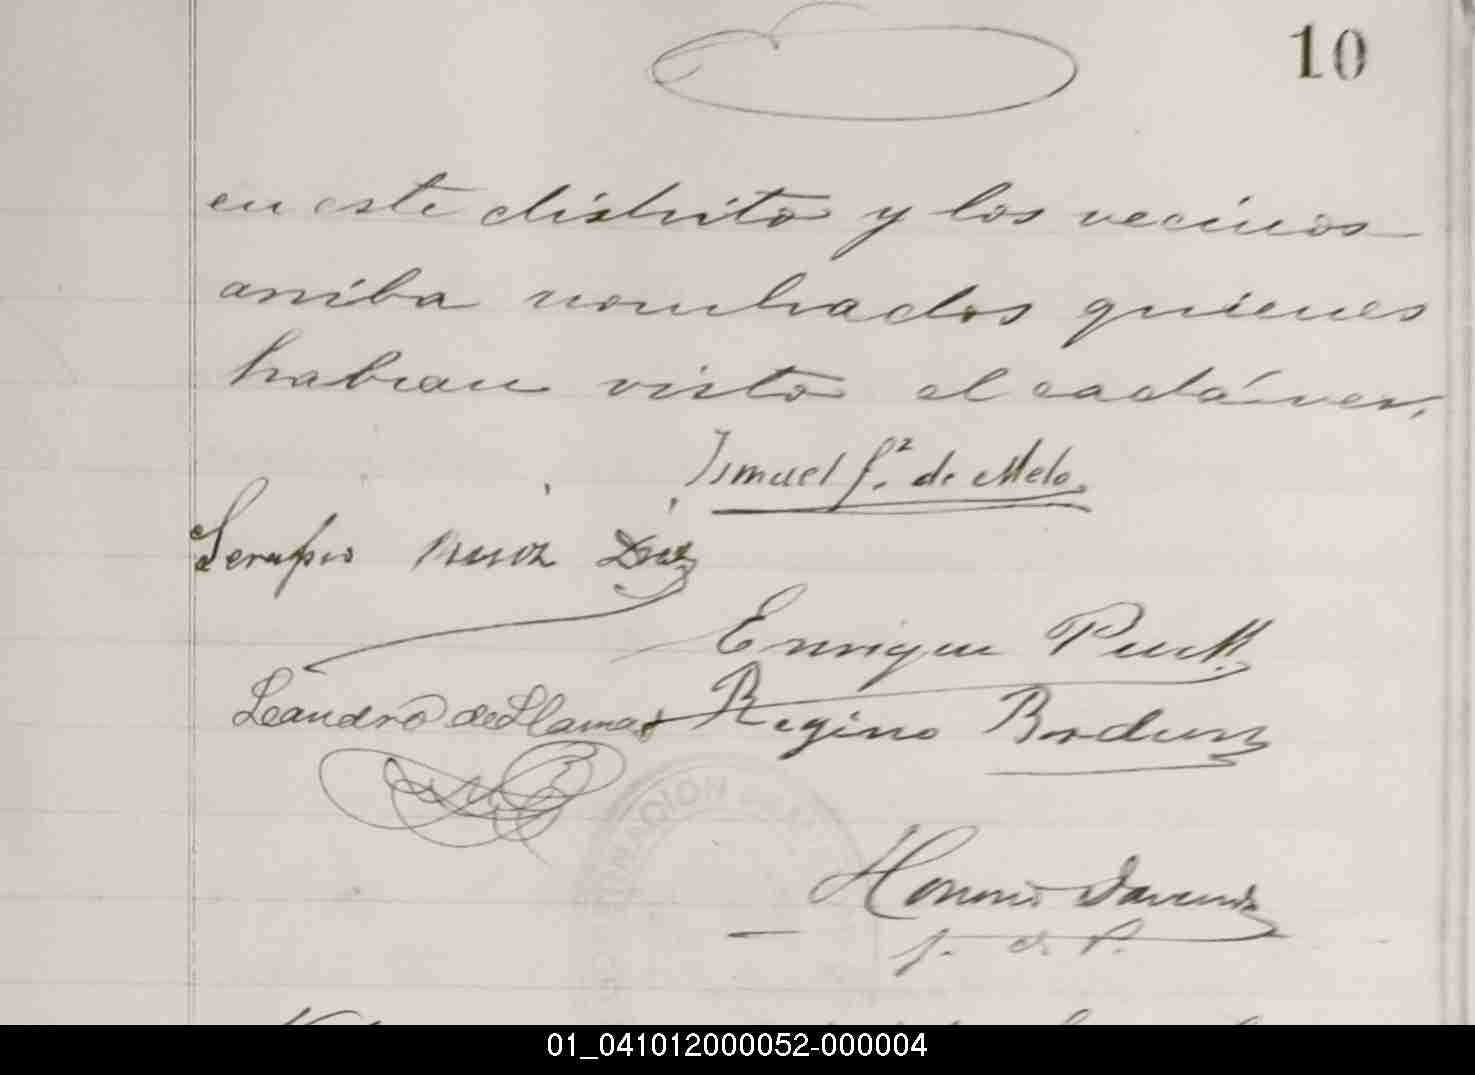 10
en este distrito y los vecinos
arriba nombrados quienes
habian visto el cadáver.
Ismael de Melo.
Serapio Diaz
Enrique
Leandro de Llamas Regino
Honorio
J. d. P.
01_041012000052-000004